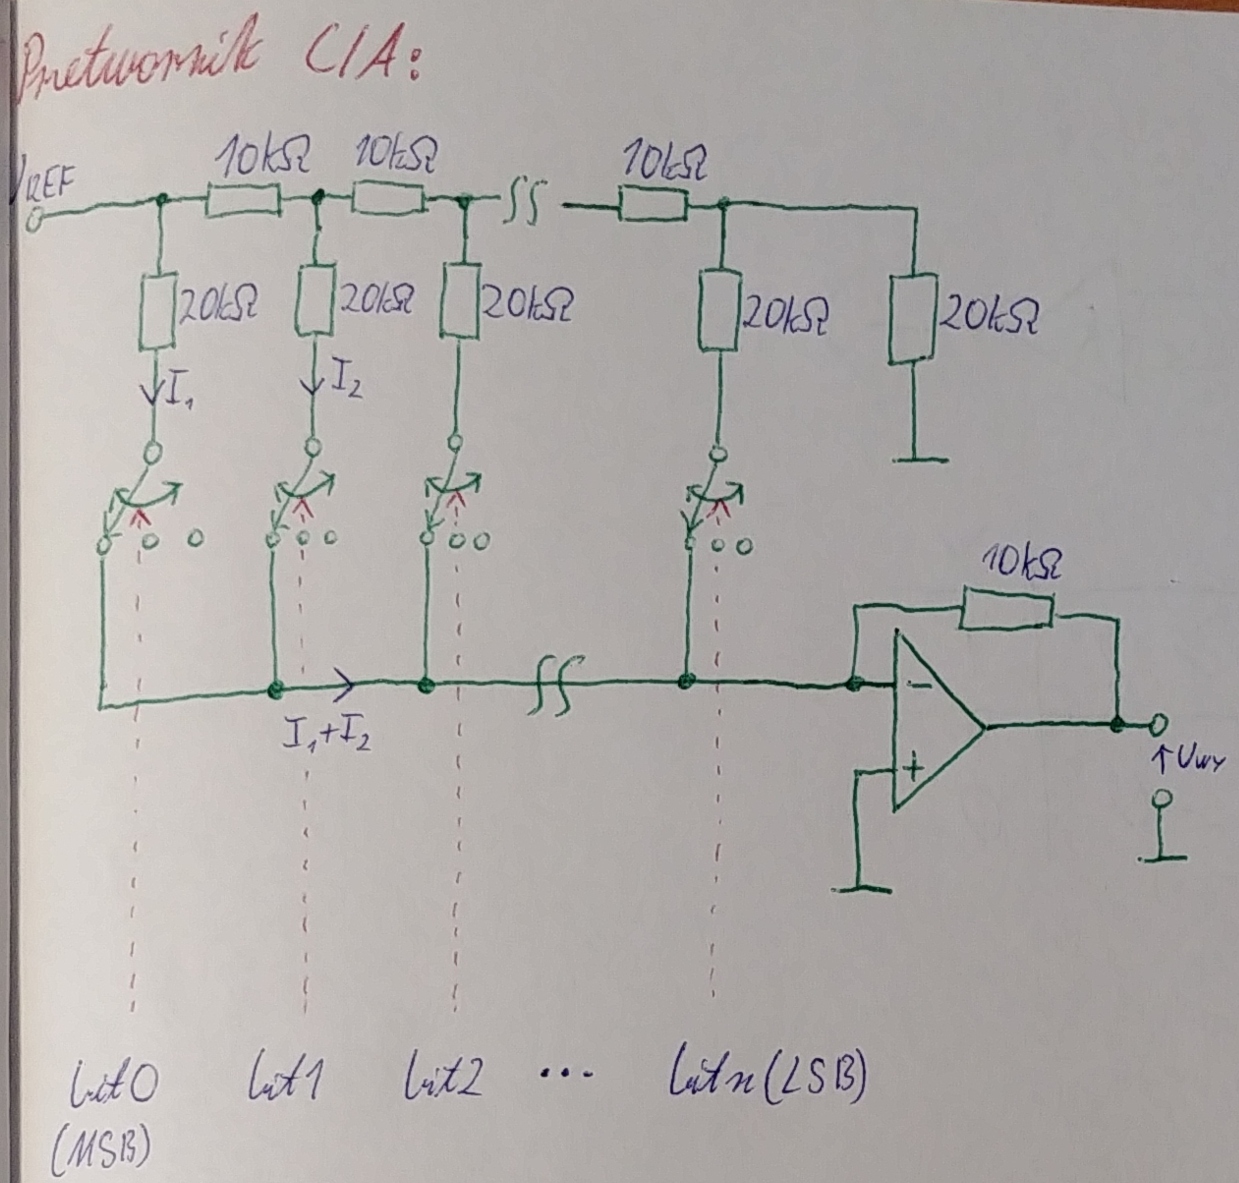 Przetwornik C/A:
UREF
10kΩ 10kΩ 10kΩ
20kΩ 20kΩ 20kΩ 20kΩ 20kΩ
I₁ I₂
10kΩ
−
I₁+I₂
+
↑UWY
bit0 bit1 bit2 ... bitn(LSB)
(MSB)